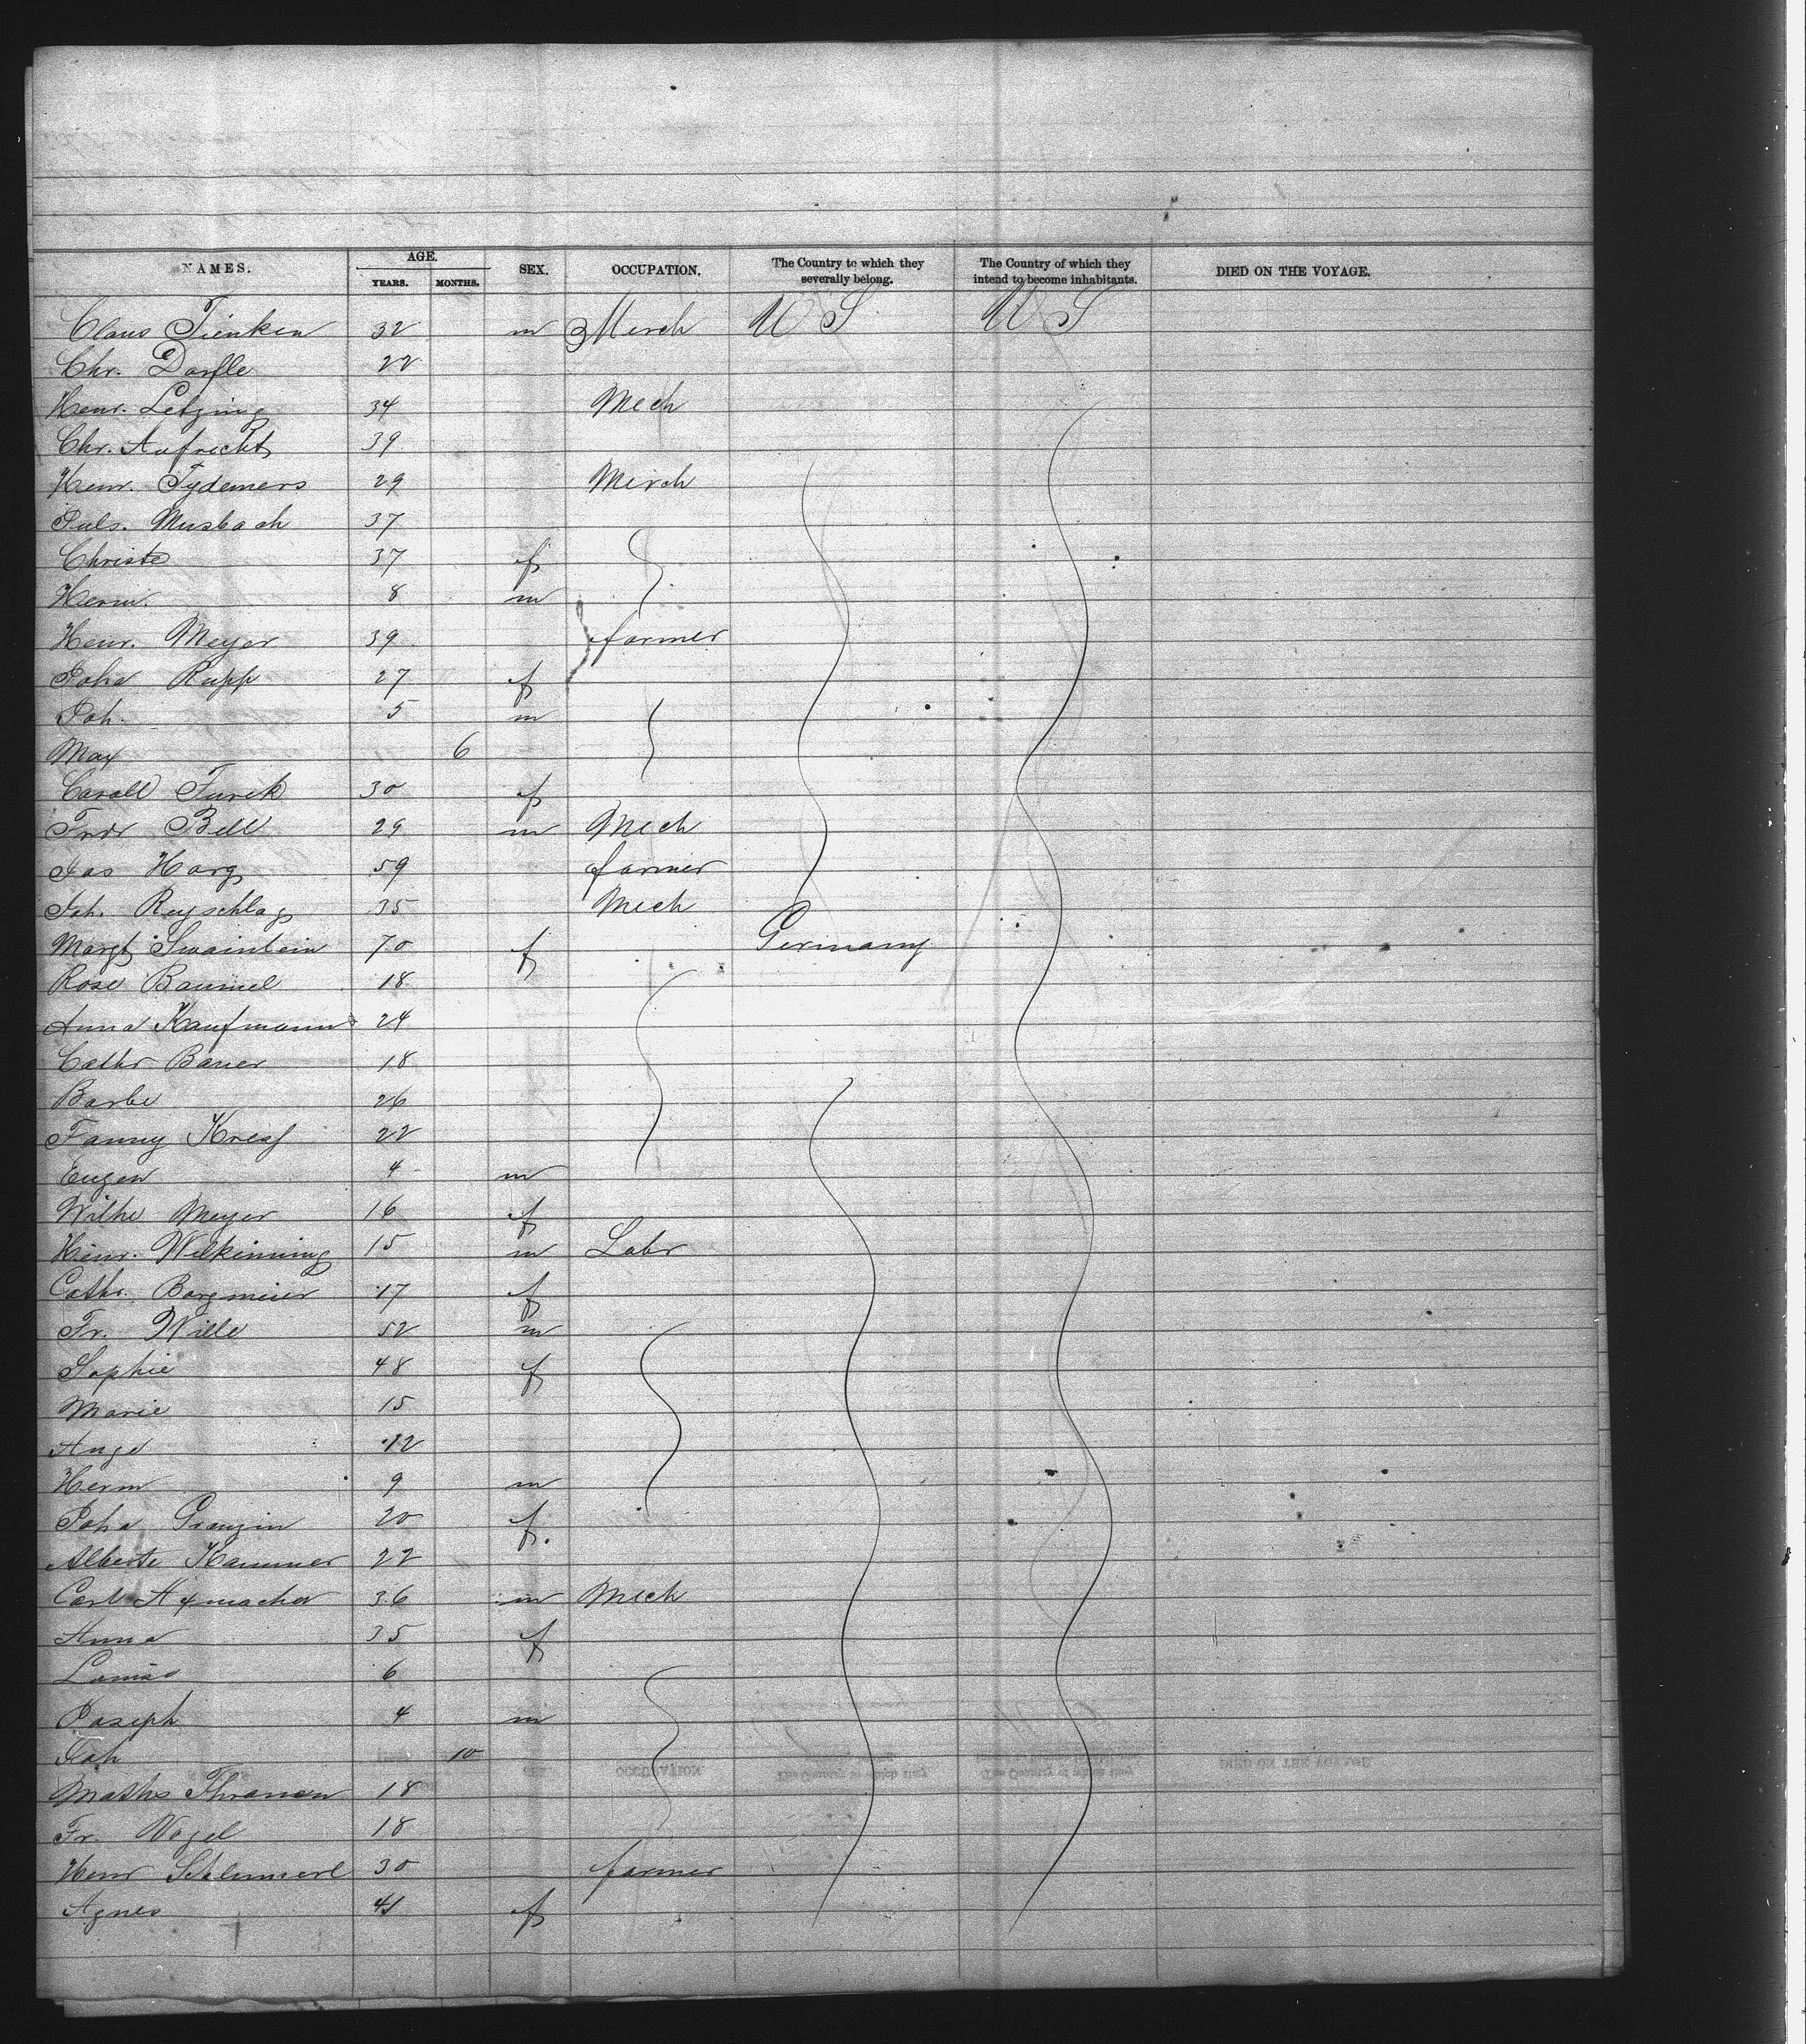 NAMES. AGE. YEARS. MONTHS. SEX. OCCUPATION. The Country to which they severally belong. The Country of which they intend to become inhabitants. DIED ON THE VOYAGE.
Claus Tienken 32 m Merch U S U S
Chr. Dorfle 22
Henr. Letzing 34 Mech
Chr. Aufrecht 39
Henr. Tydemers 29 Merch
Juls. Musbach 37
Christe 37 f
Herm. 8 m
Henr. Meyer 39 farmer
Joha Rupp 27 f
Joh. 5 m
Max 6
Caroll Turck 30 f
Frdr Bell 29 m Mech
Jas Harg 59 farmer
Joh. Reyschlag 35 Mech
Margt Swaintein 70 f Germany
Rose Baumel 18
Anna Kaufmann 24
Cathr Bauer 18
Barbe 26
Fanny Kress 22
Eugen 4 m
Wilhe Meyer 16 f
Heinr. Wilkinning 15 m Labr
Cathr. Borgmeier 17 f
Fr. Wille 52 m
Sophie 48 f
Marie 15
Ange 12
Herm 9 m
Joha Granzin 20 f.
Alberte Kammer 22
Carl Axmacher 36 m Mech
Anna 35 f
Louise 6
Joseph 4 m
Joh 10
Maths 18
Fr. Vogel 18
Henr 30 farmer
Agnes 41 f